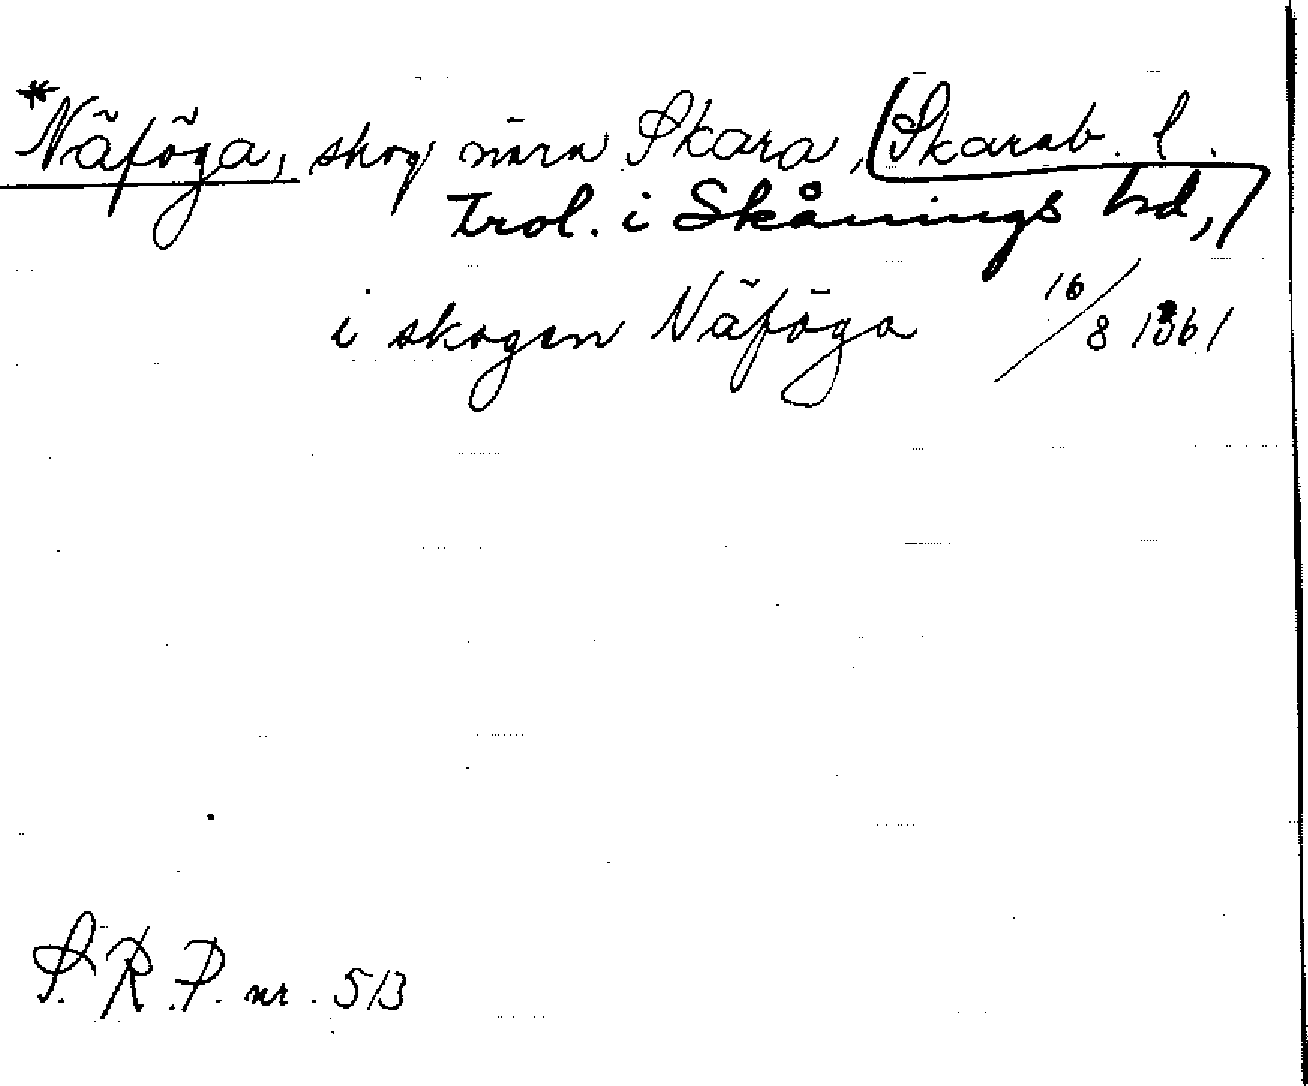 *Näföga, skog nära Skara, Skarab. l.
trol. i Skånings hd,
i skogen Näföga 16/8 1361
S.R.P. nr. 513